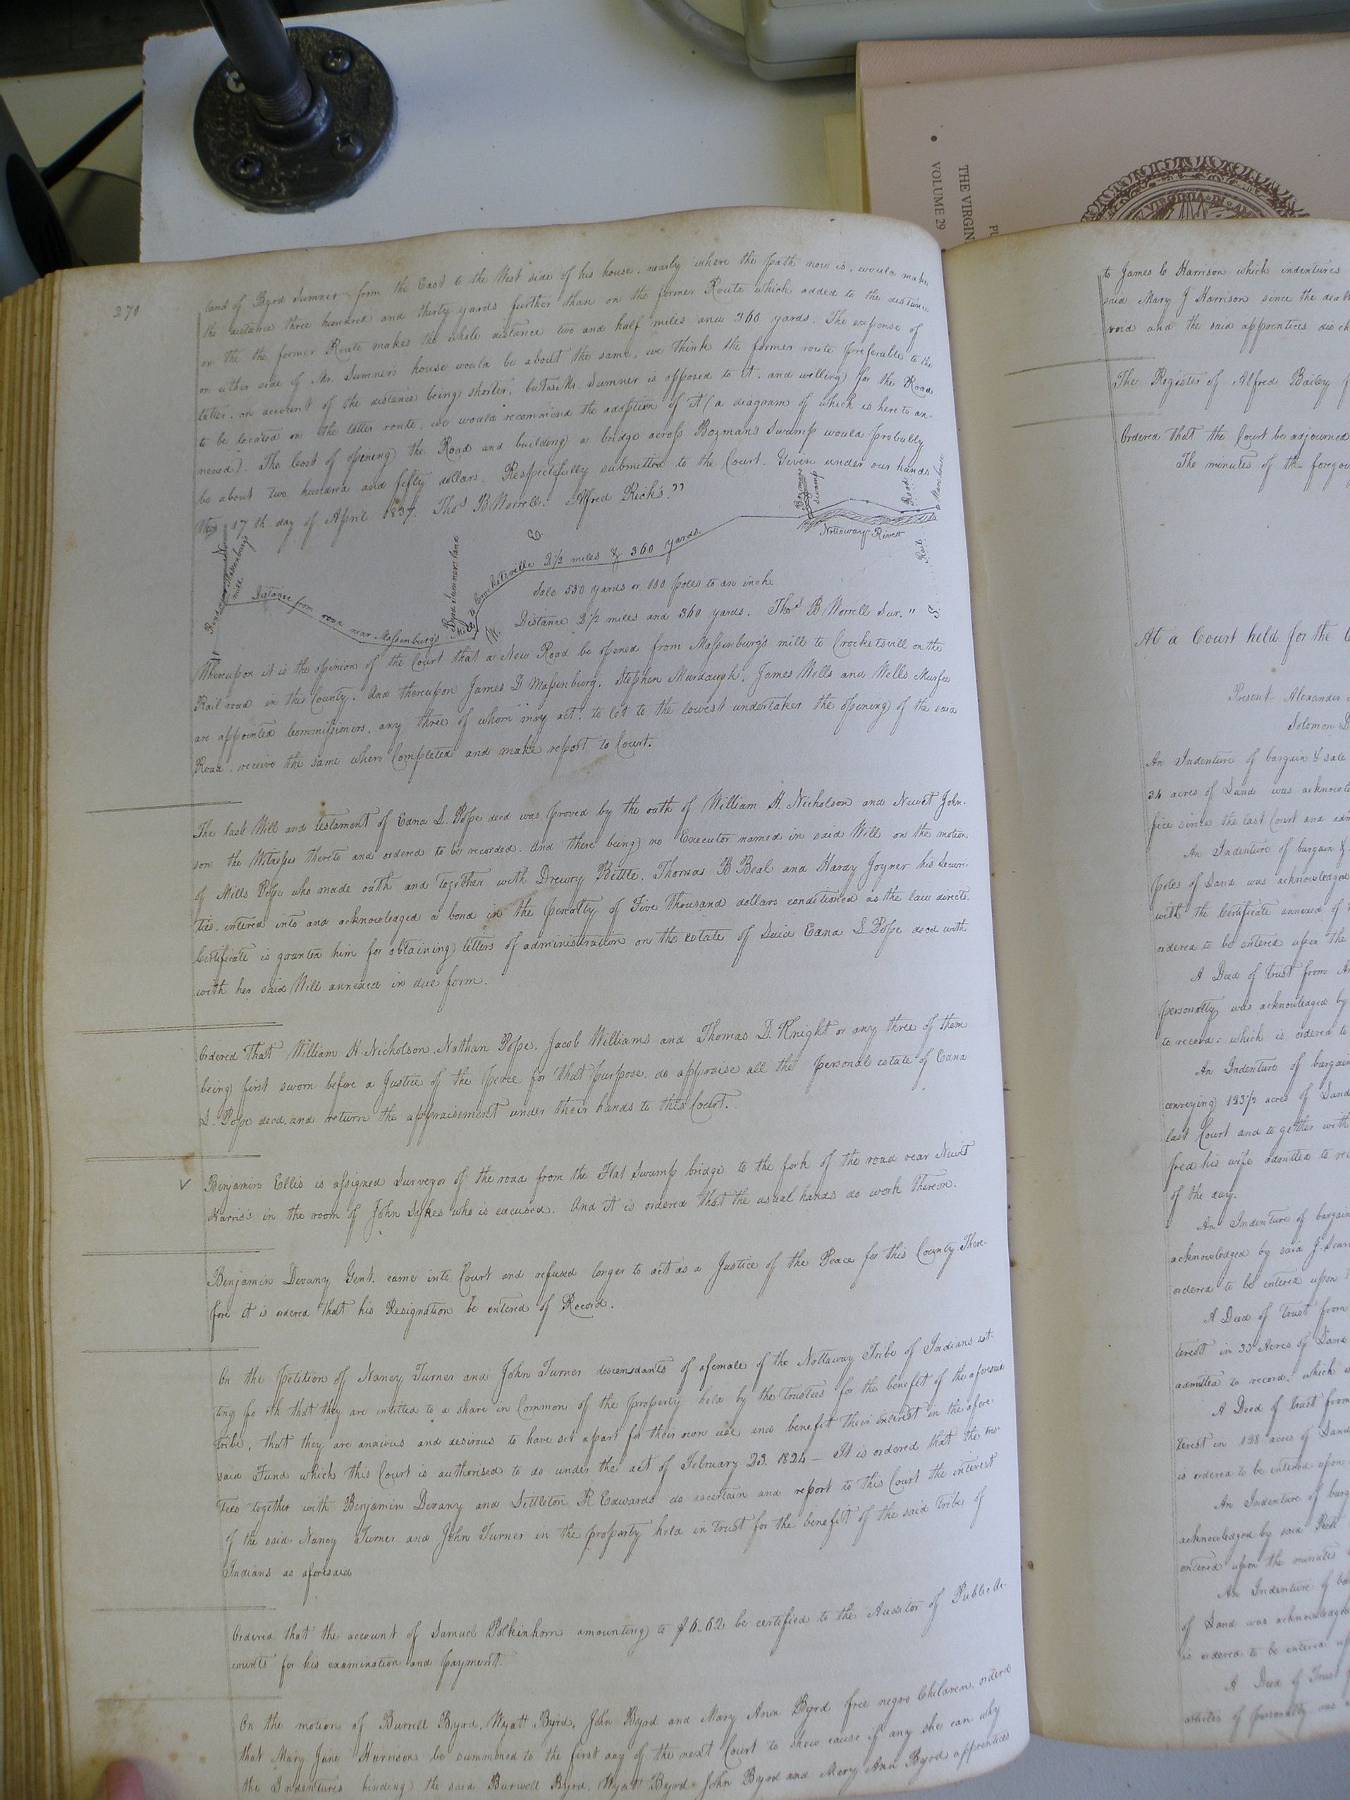 270
land of Byrd Sumner from the East to the West side of his house, nearly where the path now is, would make
the distance three hundred and thirty yards further than on the former Route which added to the distance
on the the former Route makes the whole distance two and half miles and 360 yards. The expense of
on either side of Mr. Sumner's house would be about the same, we think the former route preferable to the
latter, on account of the distance being shorter, but as Mr Sumner is opposed to it, and willing for the Road
to be located on the latter route, we would recommend the adoption of it (a diagram of which is here to an-
nexed). The Cost of opening the Road and building a bridge across Bozmans Swamp would probably
be about two hundred and fifty dollars. Respectfully submitted to the Court. Given under our hands
this 17th day of April 1837. Thos B Worrell. Alfred Ricks."
Massenburg's mill
Distance from road near Massenburg's
Byrd Sumners land
to Crocketsville 2 1/2 miles & 360 yards
Bozmans Swamp
Nottoway River
Rail Road
E.
W.
S.
Scale 550 yards or 100 poles to an inch
Distance 2 1/2 miles and 360 yards. Thos B Worrell Sur."
Whereupon it is the opinion of the Court that a New Road be opened from Massenburg's mill to Crocketsvill on the
Rail road in this County. And thereupon James D Massenburg, Stephen Murdaugh, James Wells and Wells Murfee
are appointed Commissioners, any three of whom may act, to let to the lowest undertaker the opening of the said
Road, receive the same when Completed and make report to Court.
The last Will and testament of Edna S. Pope decd was proved by the oath of William H. Nicholson and Newit John-
son the Witnesses thereto and ordered to be recorded. And there being no Executor named in said Will on the motion
of Mills Pope who made oath and together with Drewry Bittle, Thomas B Beal and Hardy Joyner his Securi-
ties, entered into and acknowledged a bond in the penalty of Five thousand dollars conditioned as the law directs
Certificate is granted him for obtaining letters of administration on the estate of Said Edna S. Pope decd with
with her said Will annexed in due form.
Ordered that William H. Nicholson, Nathan Pope, Jacob Williams and Thomas D. Knight or any three of them
being first sworn before a Justice of the peace for that purpose, do appraise all the personal estate of Edna
S. Pope decd. and return the appraisement under their hands to this Court.
Benjamin Ellis is assigned Surveyor of the road from the Flat Swamp bridge to the fork of the road near Newit
Harris's in the room of John Sykes who is excused. And it is ordered that the usual hands do work thereon.
Benjamin Devany Gent. came into Court and refused longer to act as a Justice of the Peace for this County There-
fore it is ordered that his Resignation be entered of Record.
On the Petition of Nancy Turner and John Turner descendants of a female of the Nottoway Tribe of Indians set-
ting forth that they are entitled to a share in Common of the property held by the trustees for the benefit of the aforesaid
tribe, that they are anxious and desirous to have set apart for their own use and benefit their interest in the afore-
said Fund which this Court is authorised to do under the act of February 23. 1824 — It is ordered that the trus-
tees together with Benjamin Devany and Littleton R Edwards do ascertain and report to this Court the interest
of the said Nancy Turner and John Turner in the property held in trust for the benefit of the said tribe of
Indians as aforesaid
Ordered that the account of Samuel Polkinhorn amounting to $6.62 be certified to the Auditor of Public Ac-
counts for his examination and payment.
On the motion of Burrell Byrd, Wyatt Byrd, John Byrd and Mary Ann Byrd free negro Children, orderd
that Mary Jane Harrison be summoned to the first day of the next Court to show cause if any she can why
the Indentures binding the said Burwell Byrd, Wyatt Byrd John Byrd and Mary Ann Byrd apprentices
to James C Harrison which indentures
said Mary J Harrison since the death
void and the said apprentices disch
The Register of Alfred Bailey
Ordered that the Court be adjourned
The minutes of the foregoi
At a Court held for the C
Present Alexander
Solomon D
An Indenture of bargain & sale
34 acres of Land was acknowle
fice since the last Court and adm
An Indenture of bargain &
poles of Land was acknowledged
with the Certificate annexed of
ordered to be entered upon the
A Deed of trust from
personalty was acknowledged by
to record which is ordered to
An Indenture of bargain
conveying 123 1/2 acres of Land
last Court and together with
fred his wife admitted to rec
of the day.
An Indenture of bargain
acknowledged by said J.
ordered to be entered upon
A Deed of trust from
terest in 33 Acres of Land
admitted to record, which
A Deed of trust from
terest in 198 acres of Land
is ordered to be entered upon
An Indenture of barg
acknowledged by said
entered upon the minutes
An Indenture of ba
of Land was acknowledged
is ordered to be entered up
A Deed of Trust f
articles of personalty was
THE VIRGIN
VOLUME 29
PU
VIRGINIA